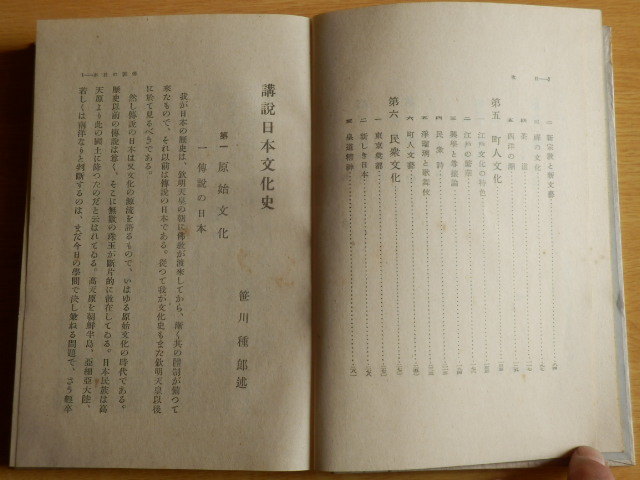 次目
二 新宗教と新文藝
三 禪の文化
四 茶道
五 西洋の潮
第五 町人文化
一 江戸文化の特色
二 江戸の繁華
三 儒學と尊攘論
四 民衆詩
五 浮世繪と歌舞伎
六 町人文藝
第六 民衆文化
一 東京奠都
二 新しき日本
三 皇道精神
講説日本文化史
笹川種郎述
第一 原始文化
一 傳説の日本
我が日本の歴史は、欽明天皇の朝に佛教が渡來してから、漸く其の體制が備つて
來たもので、それ以前は傳説の日本である。從つて我が文化史もまた欽明天皇以後
に於て見るべきである。
然し傳説の日本は又文化の源流を語るもので、いはゆる原始文化の時代である。
歴史以前の傳説は尊く、そこに無數の珠玉が斷片的に散在してゐる。日本民族は高
天原より此の國土に降つたのだと云はれてゐる。高天原を朝鮮半島、亞細亞大陸、
若しくは南洋なりと判斷するのは、まだ今日の學問で決し兼ねる問題で、さう輕卒
傳説の日本